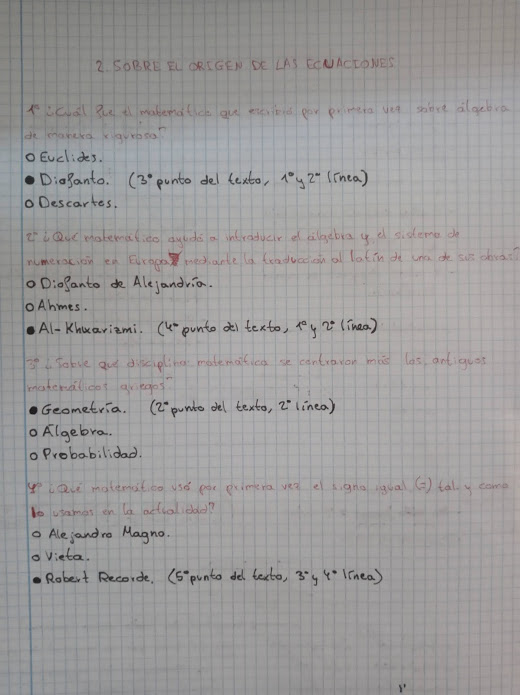 2. SOBRE EL ORIGEN DE LAS ECUACIONES
1º ¿Cuál fue el matemático que escribió por primera vez sobre álgebra
de manera rigurosa?
○ Euclides.
● Diofanto. (3º punto del texto, 1º y 2º línea)
○ Descartes.
2º ¿Qué matemático ayudó a introducir el álgebra y el sistema de
numeración en Europa mediante la traducción al latín de una de sus obras?
○ Diofanto de Alejandría.
○ Ahmes.
● Al-Khwarizmi. (4º punto del texto, 1º y 2º línea)
3º ¿Sobre qué disciplina matemática se centraron más los antiguos
matemáticos griegos?
● Geometría. (2º punto del texto, 2º línea)
○ Álgebra.
○ Probabilidad.
4º ¿Qué matemático usó por primera vez el signo igual (=) tal y como
lo usamos en la actualidad?
○ Alejandro Magno.
○ Vieta.
● Robert Recorde. (5º punto del texto, 3º y 4º línea)